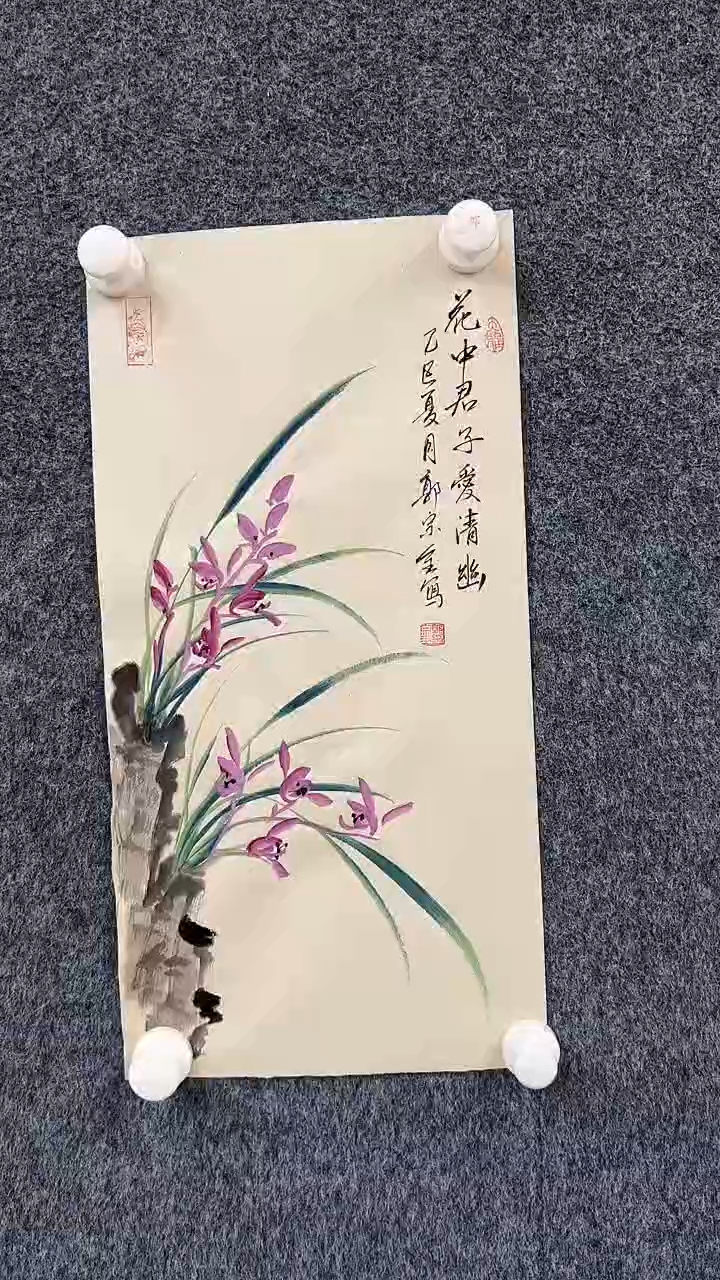 花中君子愛清幽
乙巳夏月郭宗宝写